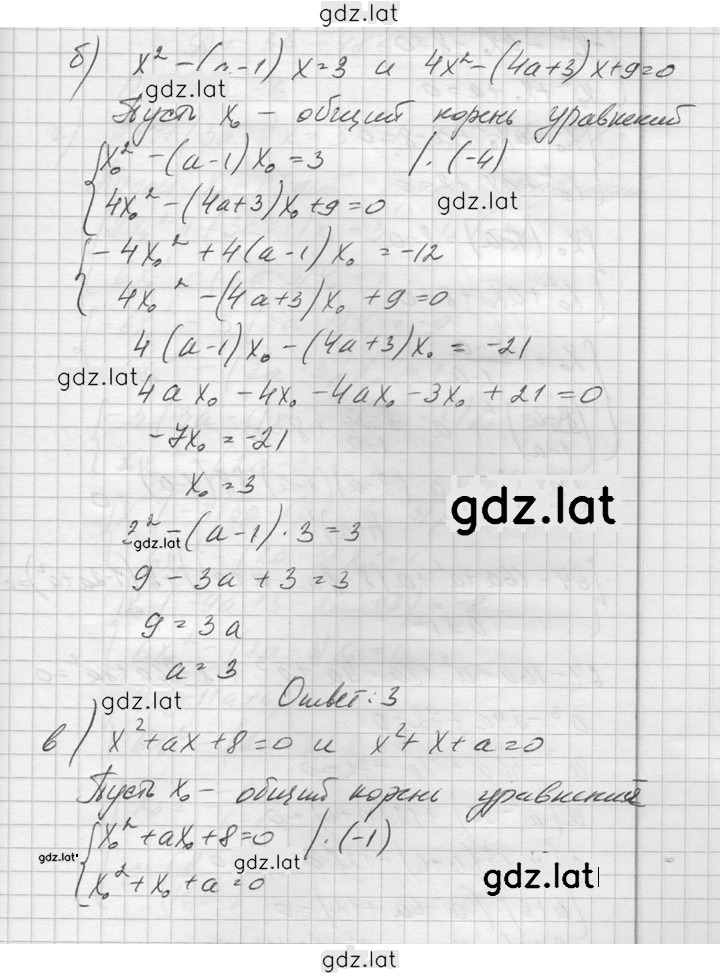 gdz.lat
б) x² - (a-1) x = 3 и 4x² - (4a+3) x + 9 = 0
gdz.lat
Пусть x₀ - общий корень уравнений
{ x₀² - (a-1) x₀ = 3 / · (-4)
gdz.lat
4x₀² - (4a+3) x₀ + 9 = 0
{ -4x₀² + 4(a-1) x₀ = -12
4x₀² - (4a+3) x₀ + 9 = 0
4 (a-1) x₀ - (4a+3) x₀ = -21
gdz.lat
4a x₀ - 4x₀ - 4a x₀ - 3x₀ + 21 = 0
-7x₀ = -21
x₀ = 3
gdz.lat
3² - (a-1) · 3 = 3
gdz.lat
9 - 3a + 3 = 3
9 = 3a
a = 3
gdz.lat
Ответ: 3
в) x² + ax + 8 = 0 и x² + x + a = 0
Пусть x₀ - общий корень уравнений
{ x₀² + ax₀ + 8 = 0 / · (-1)
gdz.lat
gdz.lat
x₀² + x₀ + a = 0
gdz.lat
gdz.lat